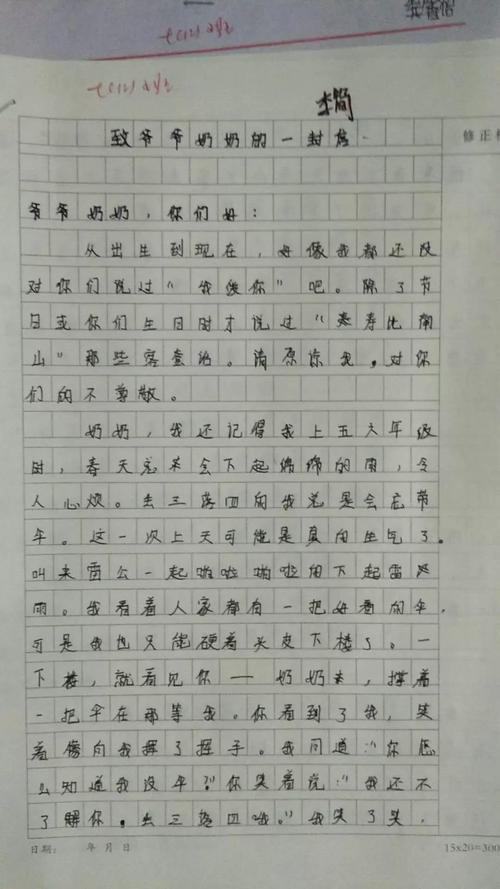 七(12) 刘
七(12) 刘
李简
致爷爷奶奶的一封信
修正
爷爷奶奶,你们好:
从出生到现在,好像我都还没
对你们说过“我爱你”吧。除了节
日或你们生日时才说过“寿比南
山”那些客套话。请原惊我,对你
们的不尊敬。
奶奶,我还记得我上五六年级
时,春天总会下起绵绵的雨,令
人心烦。丢三落四的我总是会忘带
伞。这一次上天可能是真的生气了。
叫来雷公一起啪啦啪啦的下起雷阵
雨。我看着人家都有一把好看的伞,
可是我也只能硬着头皮下楼了。一
下楼,就看见你——奶奶,撑着
一把伞在那等我。你看到了我,笑
着像向我挥了挥手。我问道:“你怎
么知道我没伞?”你笑着说:“我还不
了解你。丢三落四哦。”我笑了笑,
日期: 年 月 日 15x20=300